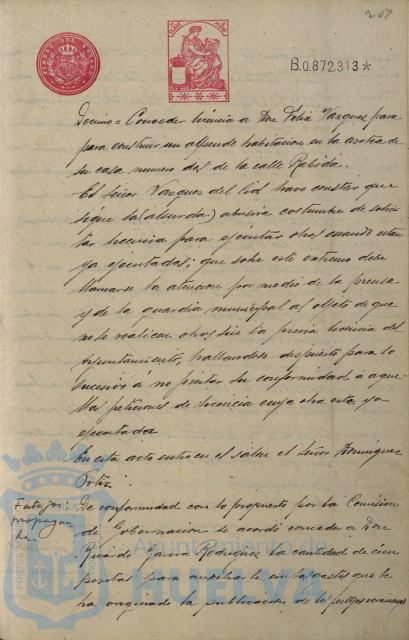 207
B.0.872.313*
Decimo = Conceder licencia a Don Felix Vazquez para
para construir un alpende habitacion en la azotea de
su casa numero dos de la calle Rabida.
El Señor Vazquez del Cid hace constar que
sigue la (absurda) abusiva costumbre de solici-
tar licencia para ejecutar obras cuando estan
ya ejecutadas; que sobre este extremo debe
llamarse la atencion por medio de la prensa
y de la guardia municipal al objeto de que
no se realicen obras sin la previa licencia del
Ayuntamiento, hallandose dispuesto para lo
sucesivo á no prestar su conformidad á aque-
llas peticiones de licencia cuya obra este ya
ejecutada
En este acto entro en el salon el Señor Dominguez
Ortiz.
Festejos:
propagan
da.
De conformidad con lo propuesto por la Comision
de Gobernacion se acordó conceder a Don
Ricardo Garcia Rodriguez la cantidad de cien
pesetas para auxiliarle en los gastos que le
ha originado la publicacion de los festejos veraniegos
Ayuntamiento de
HUELVA